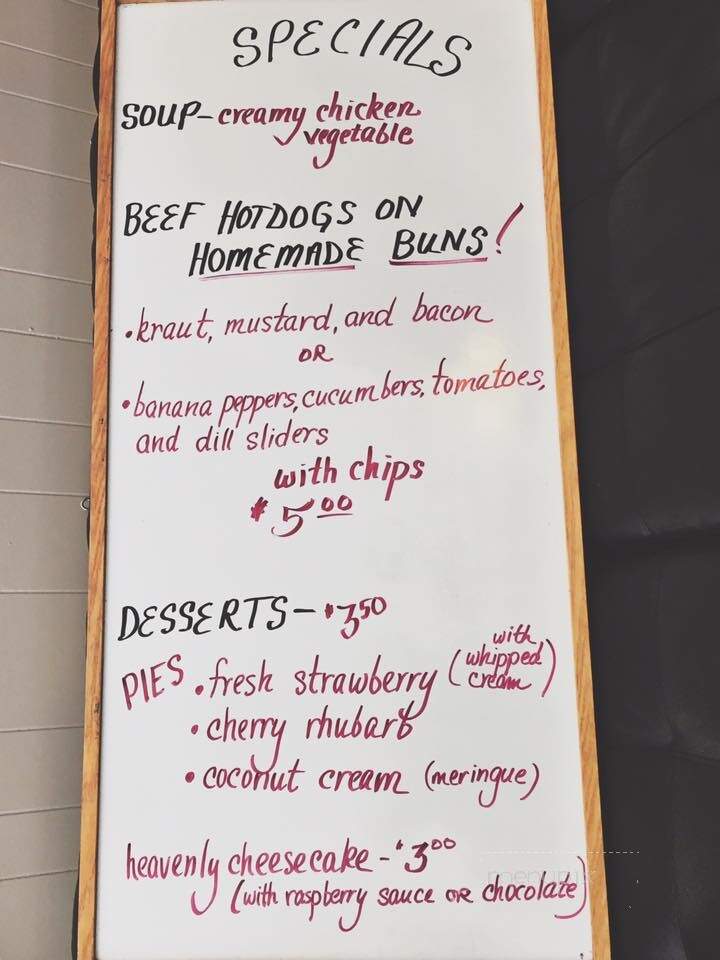 SPECIALS
SOUP - creamy chicken
vegetable
BEEF HOTDOGS ON
HOMEMADE BUNS!
• kraut, mustard, and bacon
OR
• banana peppers, cucumbers, tomatoes,
and dill sliders
with chips
$5.00
DESSERTS - $3.50
PIES • fresh strawberry (with whipped cream)
• cherry rhubarb
• coconut cream (meringue)
heavenly cheesecake - $3.00
(with raspberry sauce OR chocolate)